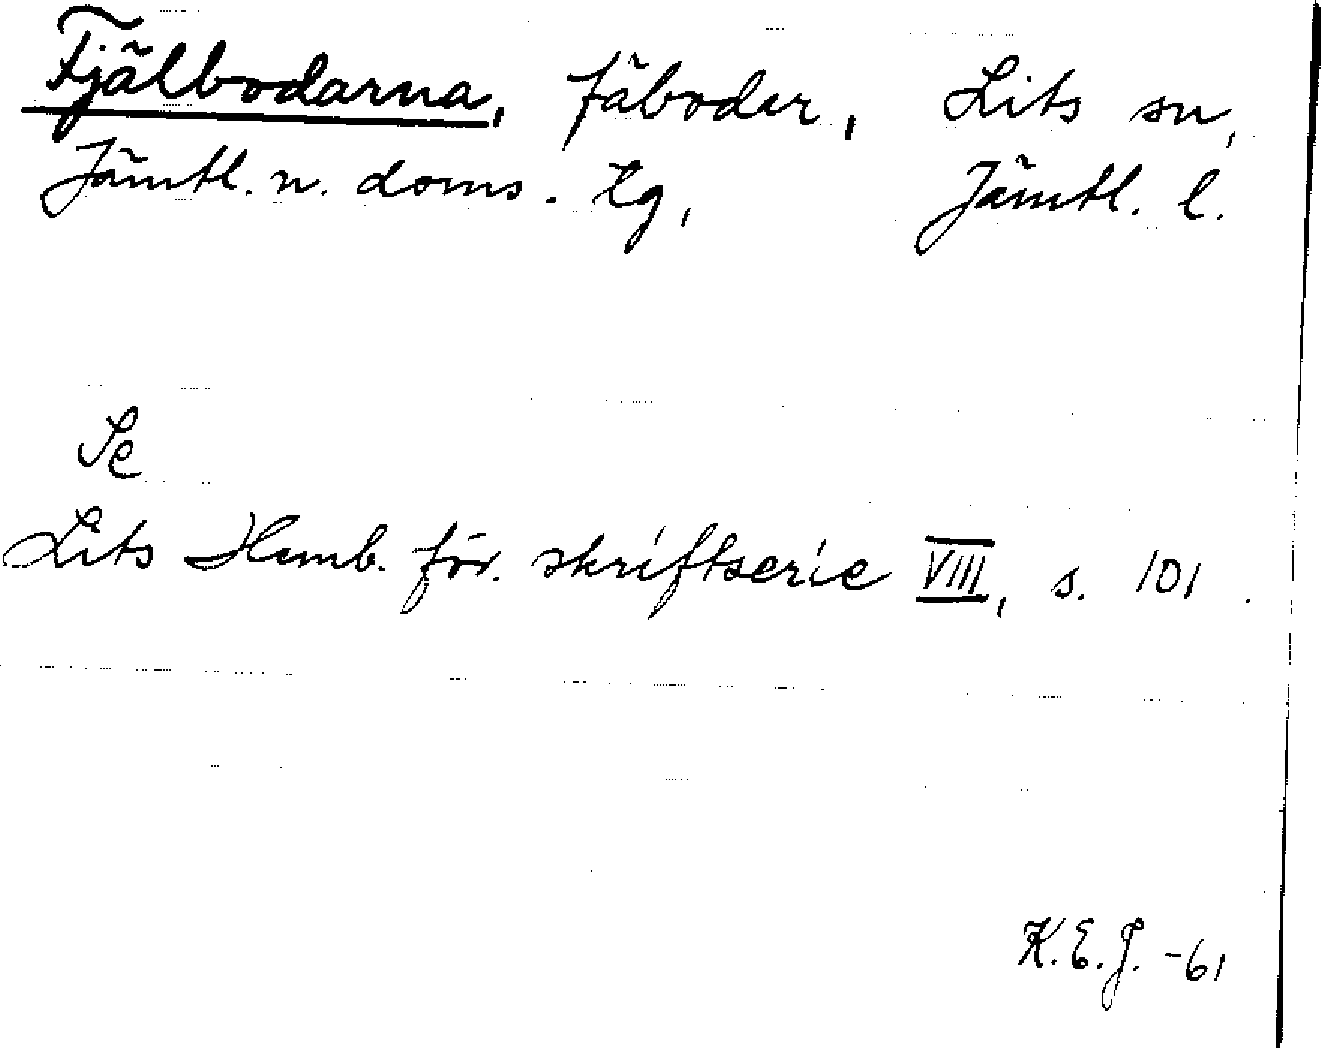 Fjälbodarna, fäboder, Lits sn,
Jämtl. n. doms. tg, Jämtl. l.
Se
Lits Hemb. för. skriftserie VIII, s. 101.
K.E.J. -61